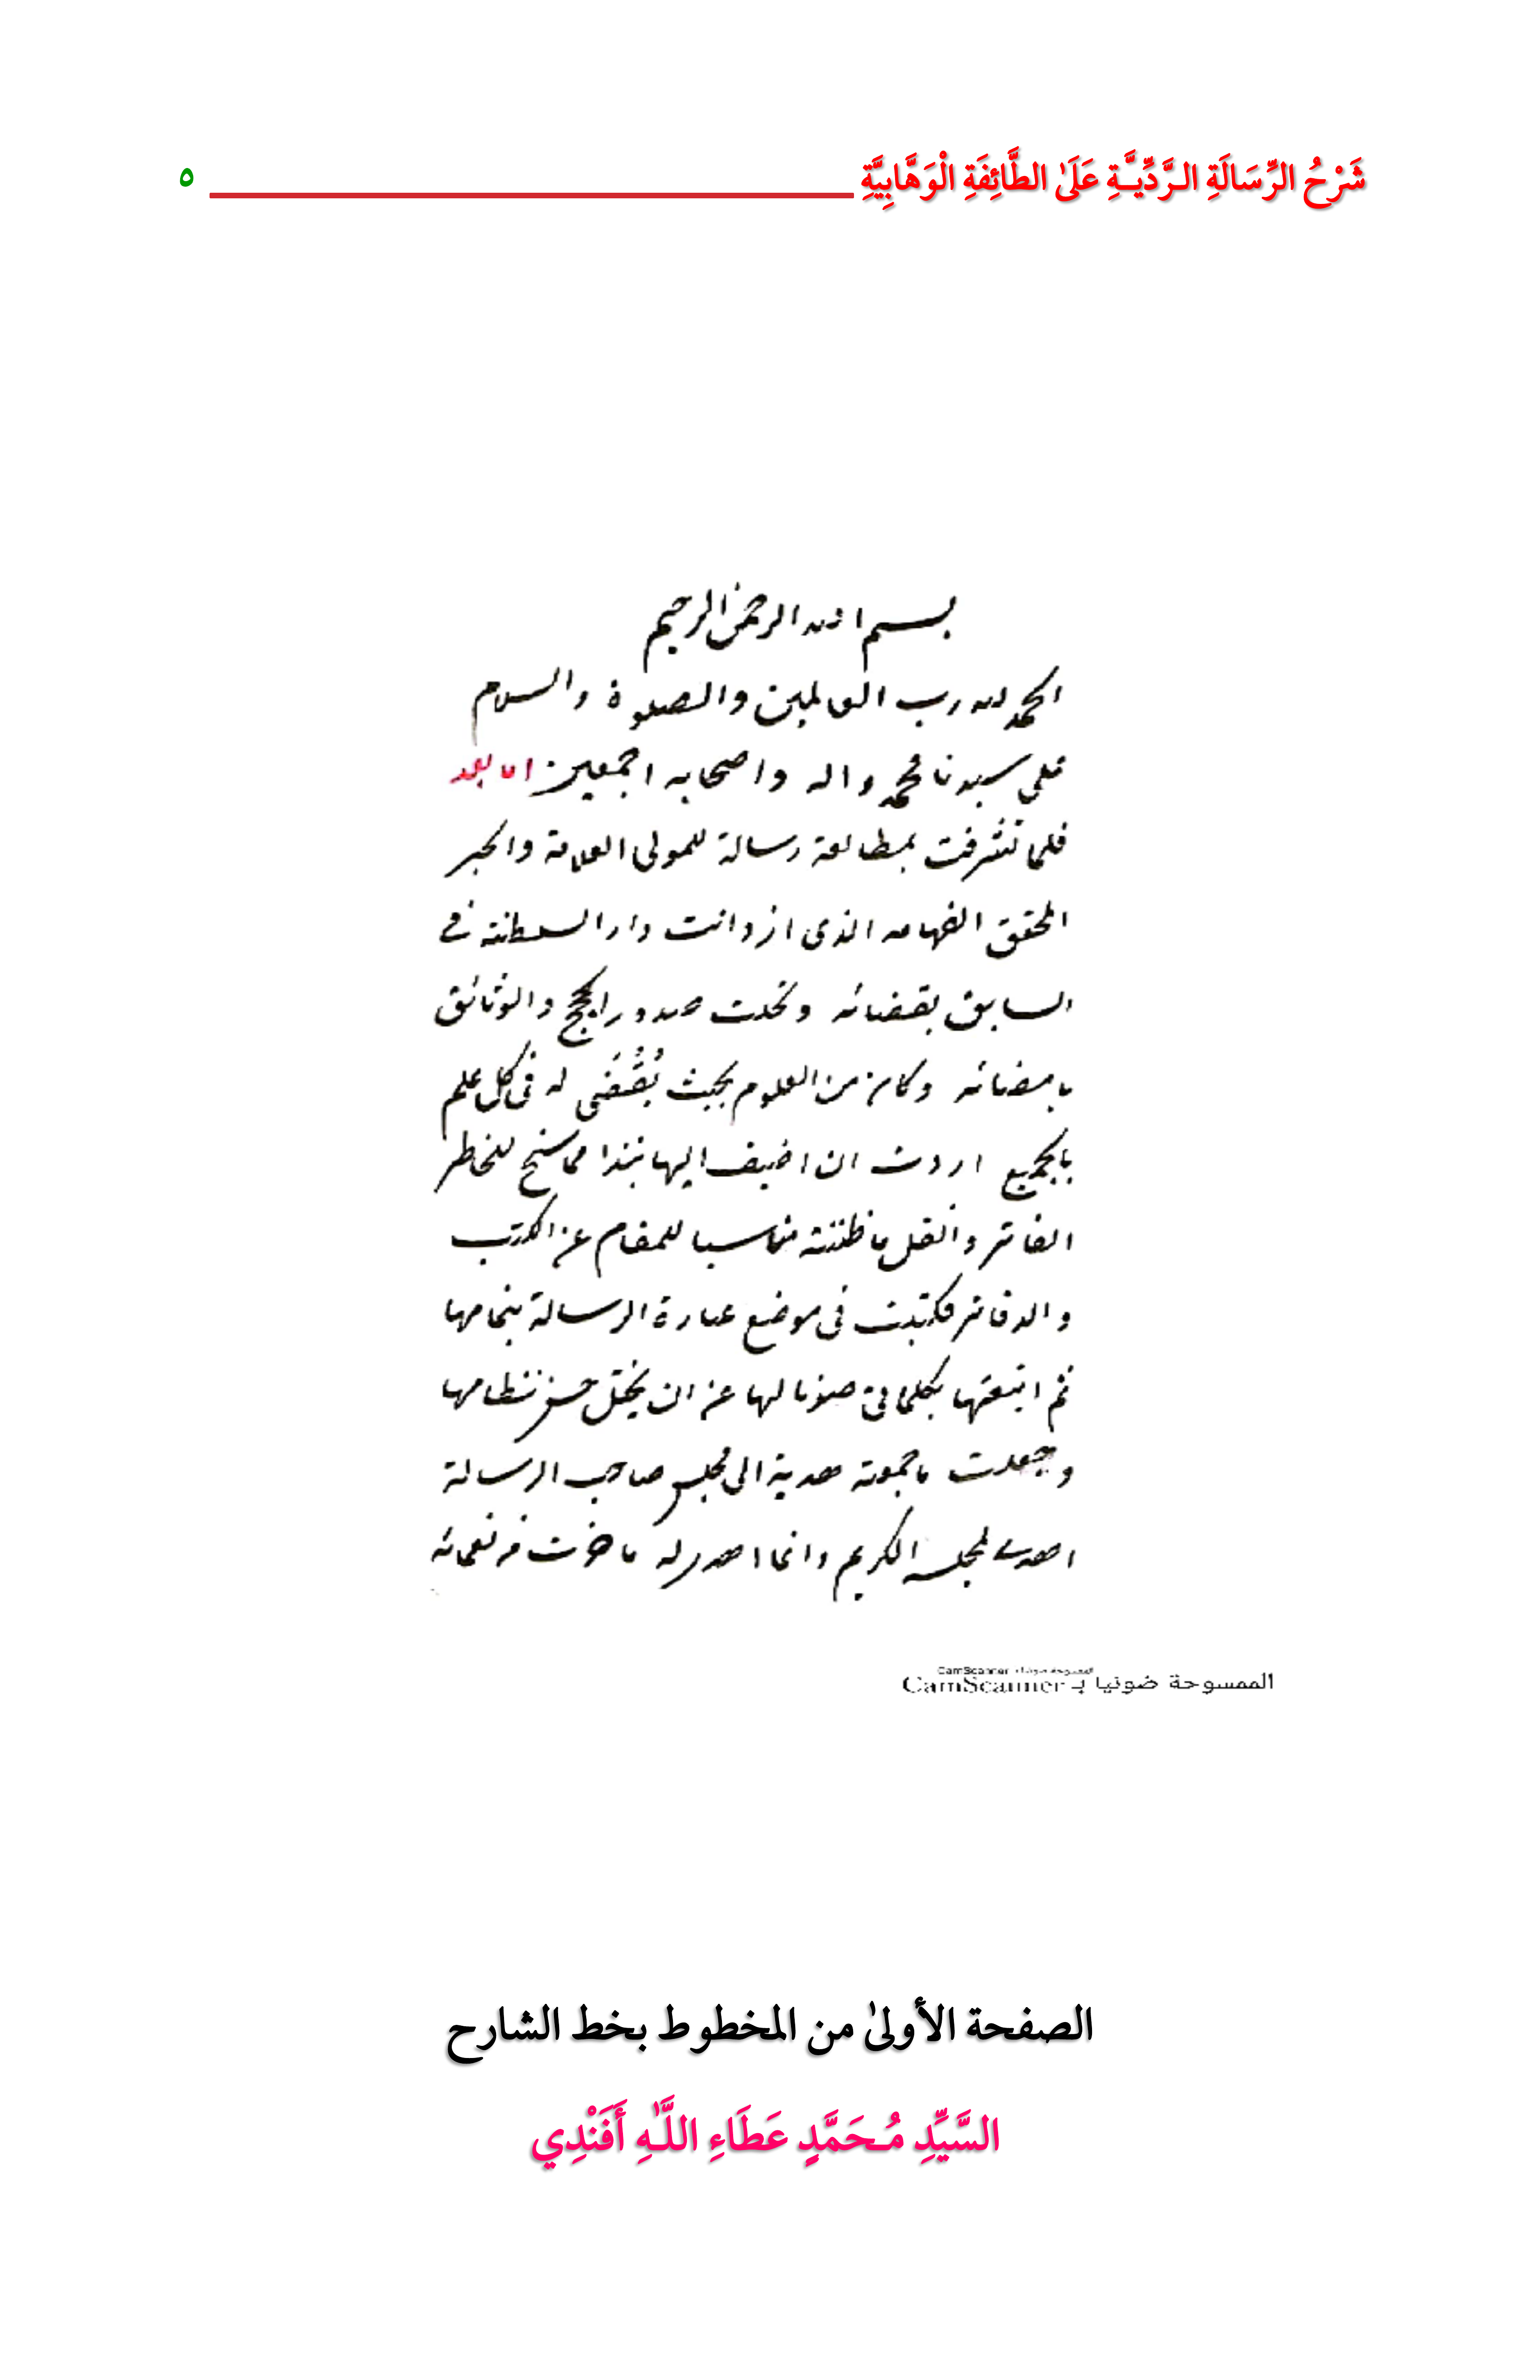 شَرْحُ الرِّسَالَةِ الـرَّدِّيَّـةِ عَلَىٰ الطَّائِفَةِ الْوَهَّابِيَّةِ ٥
بسم الله الرحمن الرحيم
الحمد لله رب العالمين والصلوة والسلام
على سيدنا محمد واله واصحابه اجمعين اما بعد
فلما تشرفت بمطالعة رسالة للمولى العلامة والحبر
المحقق الفهامه الذى ازدانت دار السلطنته فى
السابق بقضائه وتحلت صدور الحجج والوثائق
بامضائه وكان من العلوم بحيث يُقْضَى له فى كل علم
بالجميع اردت ان اضيف اليها نبذا مما سنح للخاطر
الفاتر وانقل ما ظننته مناسبا للمقام عن الكتب
والدفاتر فكتبت فى موضع عبارة الرسالة بتمامها
ثم اتبعتها بكلماتى صونا لها عن ان يختل حسن نظامها
وجعلت ما جمعته هدية الى مجلس صاحب الرسالة
اهدى لمجلسه الكريم وانما اهدى له ما حزت من نعمائه
الممسوحة ضوئيا بـ CamScanner
الممسوحة ضوئيا بـ CamScanner
الصفحة الأولىٰ من المخطوط بخط الشارح
السَّيِّدِ مُـحَمَّدٍ عَطَاءِ اللَّـهِ أَفَنْدِي